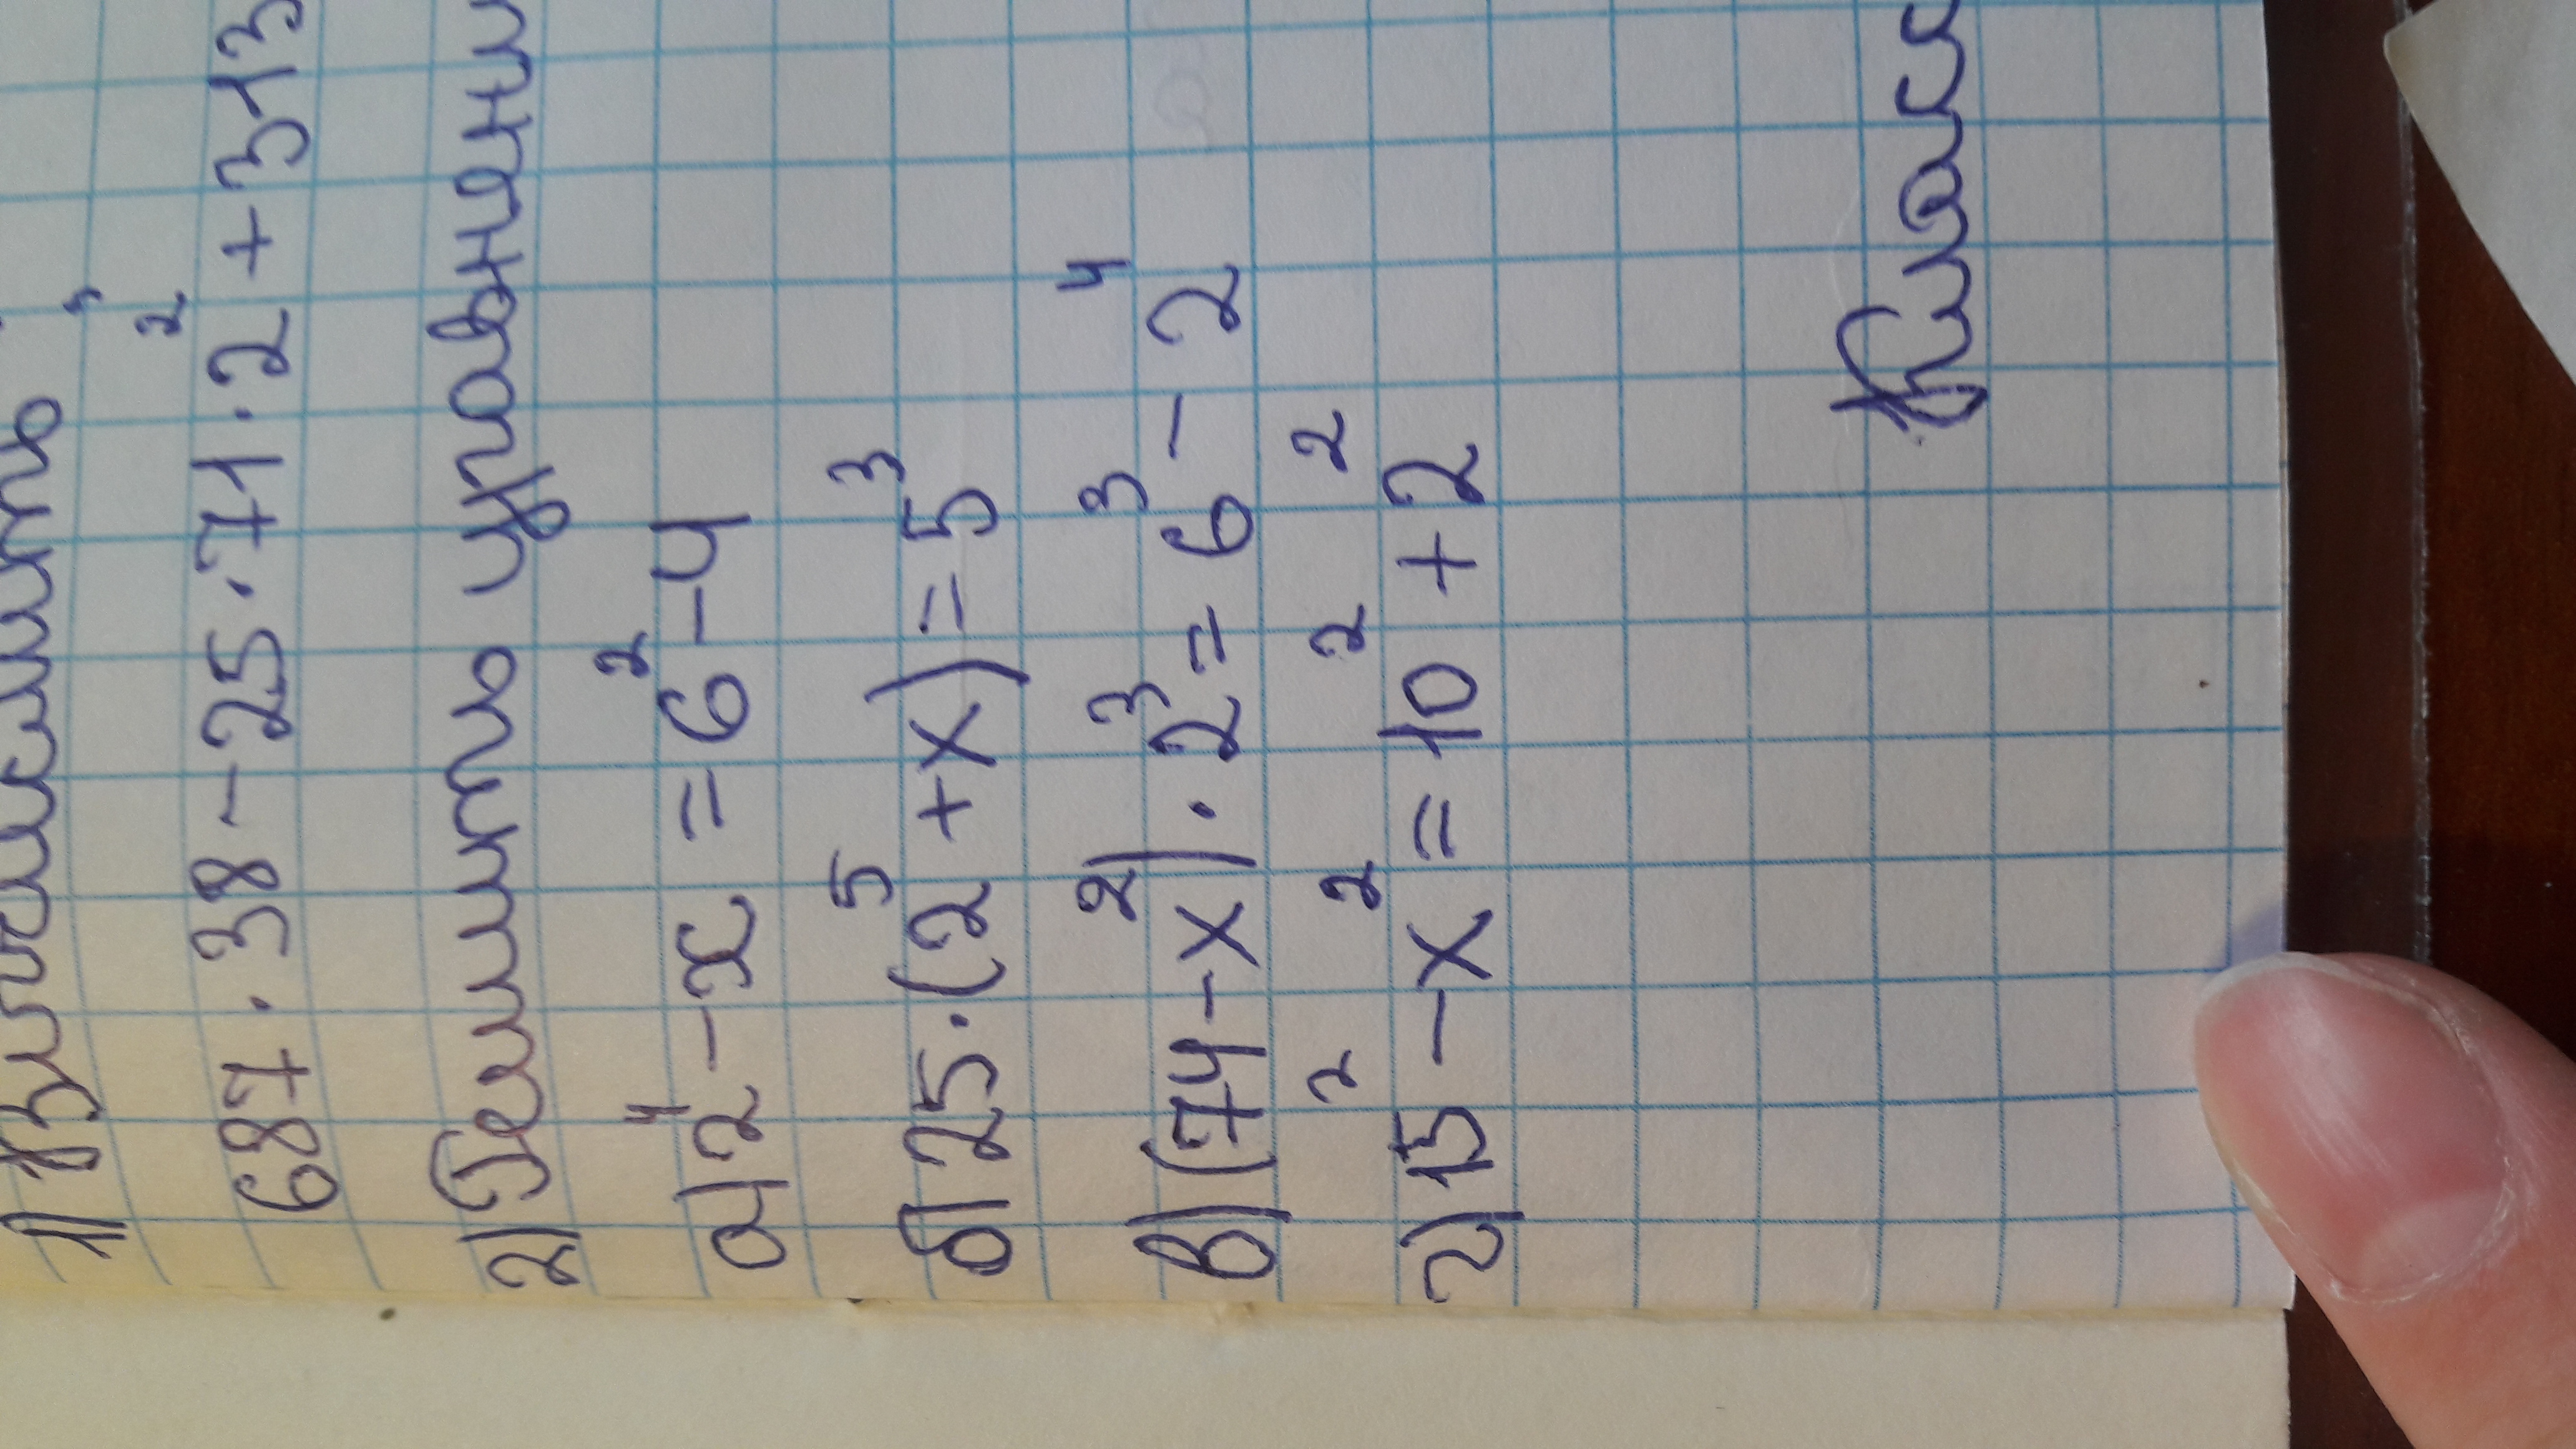 1) Вычислить
687·38-25·71·2²+313
2) Решить уравнени
а) 2⁴-x=6²-4
б) 25·(2⁵+x)=5³
в) (74-x²)·2³=6³-2⁴
г) 15²-x²=10²+2²
Класс